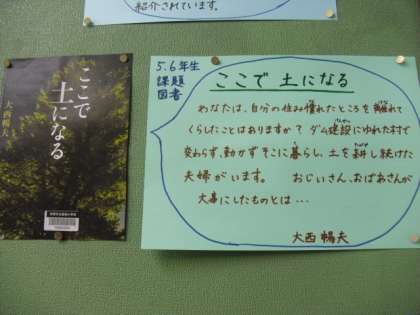 紹介されています。
ここで
土になる
大西暢夫
5.6年生
課題
図書
ここで 土になる
あなたは、自分の住み慣れたところを離れて
くらしたことはありますか？ ダム建設にゆれた村で
変わらず、動かずそこに暮らし、土を耕し続けた
夫婦がいます。 おじいさん、おばあさんが
大事にしたものとは…
大西 暢夫